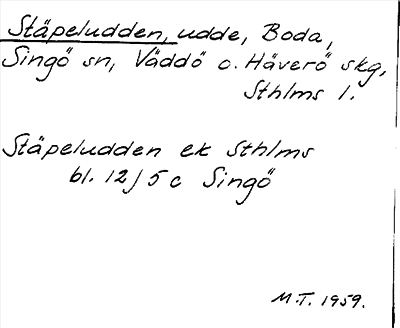 Stäpeludden, udde, Boda,
Singö sn, Väddö o. Häverö skg,
Sthlms l.
Stäpeludden ek Sthlms
bl. 12/5 c Singö
M.T. 1959.